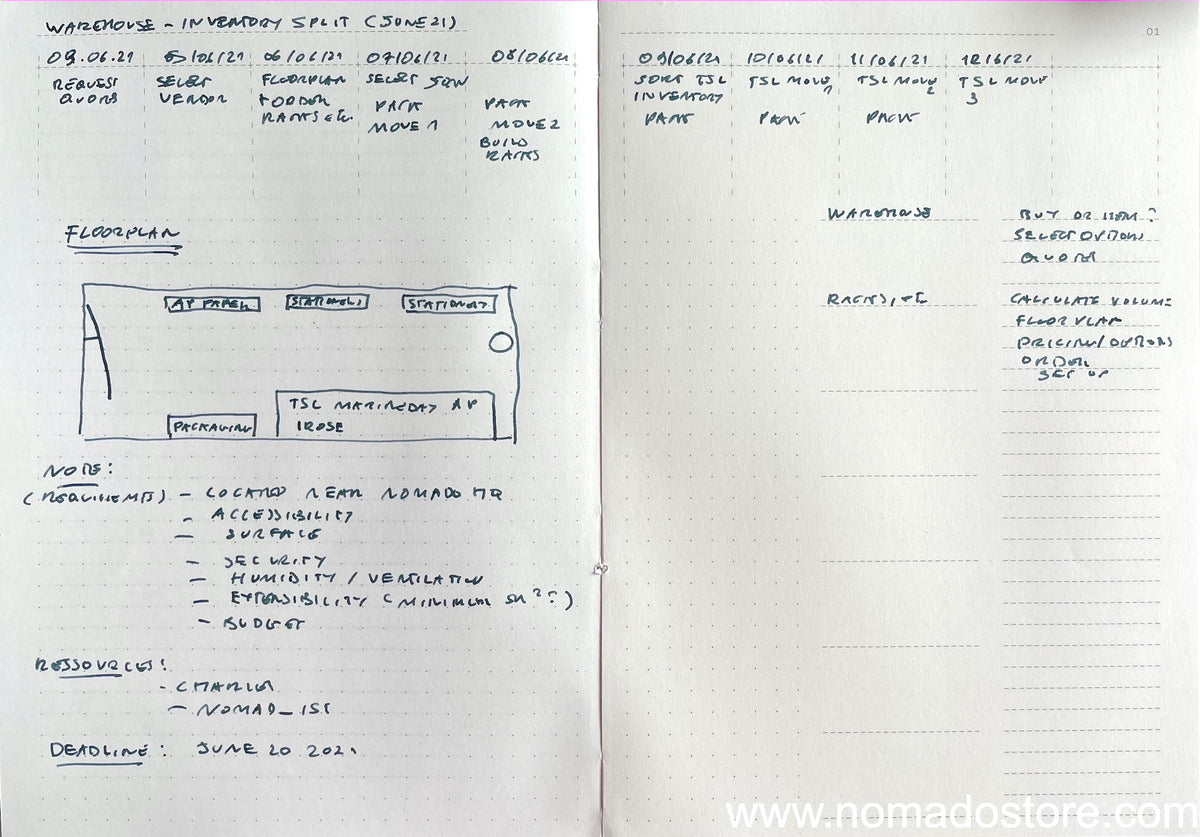 WAREHOUSE - INVENTORY SPLIT (JUNE 21)
05/06/21 06/06/21 07/06/21 08/06/21
REQUEST SELECT FLOORPLAN SELECT
VENDOR TO ORDER PACK PACK
RACKS etc. MOVE 1 MOVE 2
BUILD
RACKS
FLOORPLAN
AP PAPER STATIONERY STATIONERY
TSL MARINEDAY AP
IROSE
PACKAGING
NOTE:
(REQUIREMENTS) - LOCATED NEAR NOMADO HQ
- ACCESSIBILITY
- SURFACE
- SECURITY
- HUMIDITY / VENTILATION
- EXTENSIBILITY (MINIMUM SM²?)
- BUDGET
RESSOURCES:
- CHARLES
- NOMAD_IST
DEADLINE: JUNE 20 2021
01
09/06/21 10/06/21 11/06/21 12/6/21
SORT TSL TSL MOVE 1 TSL MOVE 2 TSL MOVE 3
INVENTORY
PACK PACK PACK
WAREHOUSE BUY OR RENT?
SELECT OPTIONS
QUOTES
RACKS, etc CALCULATE VOLUME
FLOORPLAN
PRICING/OPTIONS
ORDER
SET UP
www.nomadostore.com